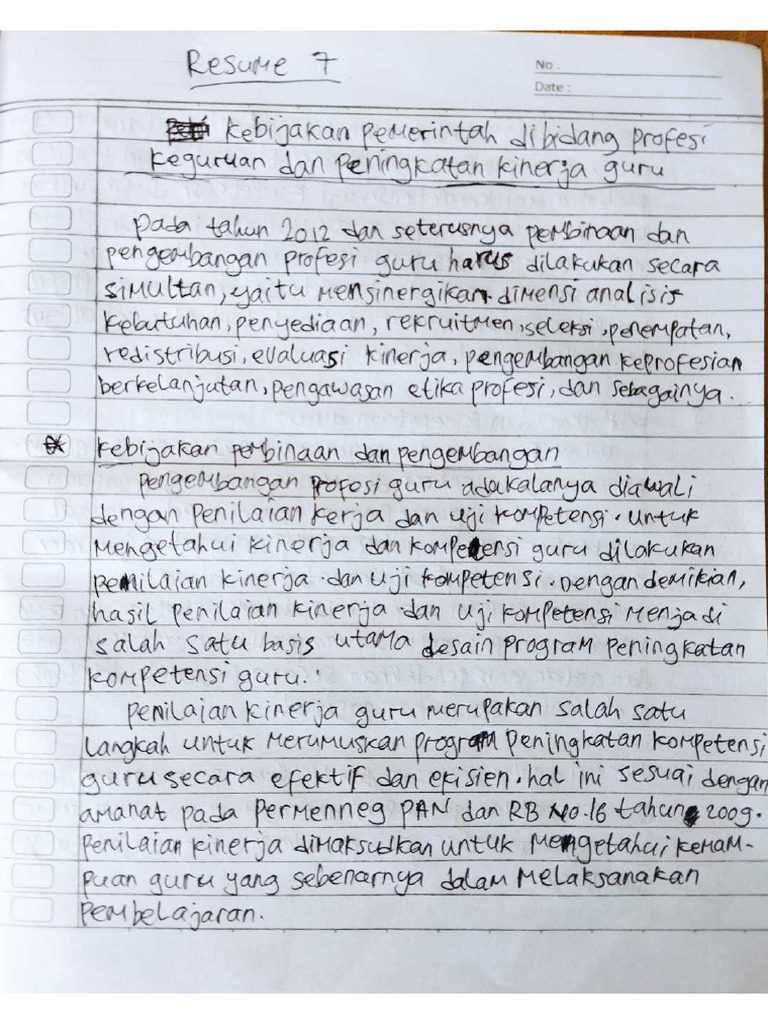 Resume 7
No.
Date:
Kebijakan pemerintah dibidang profesi
keguruan dan peningkatan kinerja guru
pada tahun 2012 dan seterusnya pembinaan dan
pengembangan profesi guru harus dilakukan secara
simultan, yaitu mensinergikan dimensi analisis
kebutuhan, penyediaan, rekruitmen, seleksi, penempatan,
redistribusi, evaluasi kinerja, pengembangan keprofesian
berkelanjutan, pengawasan etika profesi, dan sebagainya.
kebijakan pembinaan dan pengembangan
pengembangan profesi guru adakalanya diawali
dengan penilaian kerja dan uji kompetensi. untuk
mengetahui kinerja dan kompetensi guru dilakukan
penilaian kinerja dan uji kompetensi. Dengan demikian,
hasil penilaian kinerja dan uji kompetensi menjadi
salah satu basis utama desain program peningkatan
kompetensi guru.
penilaian kinerja guru merupakan salah satu
langkah untuk merumuskan program peningkatan kompetensi
guru secara efektif dan efisien. hal ini sesuai dengan
amanat pada permenneg PAN dan RB No.16 tahun 2009.
penilaian kinerja dimaksudkan untuk mengetahui kemam-
puan guru yang sebenarnya dalam melaksanakan
pembelajaran.